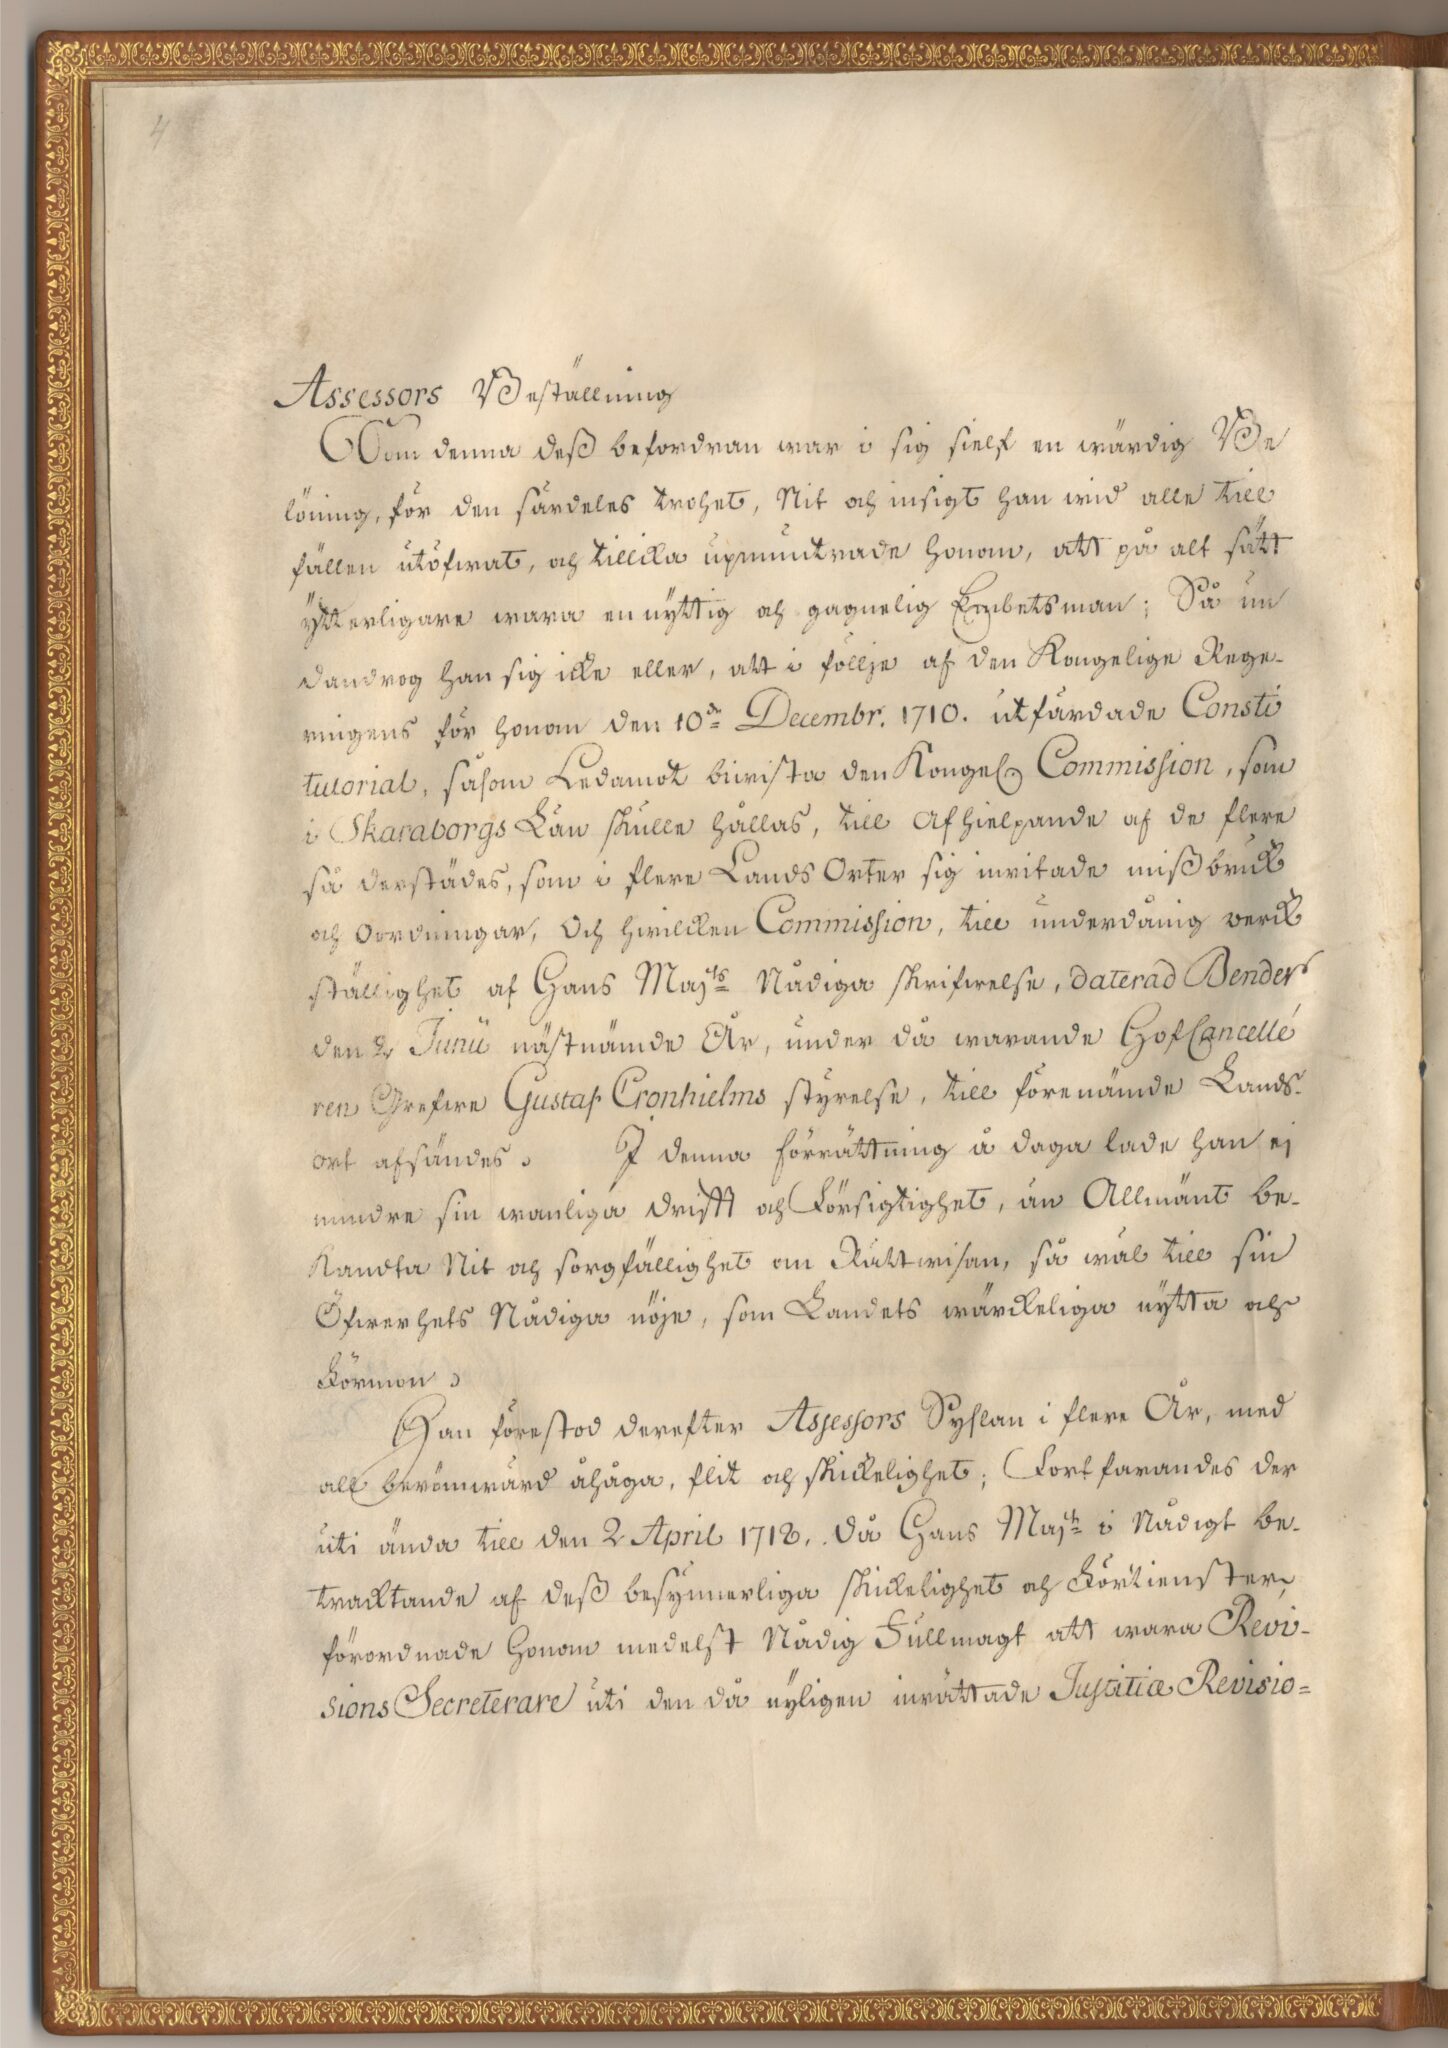 4
Assessors Beställning
Som denna deß befordran war i sig sielf en wärdig Be
löning, för den särdeles trohet, Nit och insigt han wid alle till
fällen utöfwat, och tillika upmuntrade honom, att på alt sätt
ytterligare wara en nyttig och gagnelig Embetsman; Så un
dandrog han sig icke eller, att iföllje af den Kongelige Rege-
ringens för honom den 10de Decembr. 1710. utfärdade Consti
tutorial, såsom Ledamot biwista den Kongel. Commission, som
i Skaraborgs Län skulle hållas, till afhielpande af de flere
så derstädes, som i flere Lands Orter sig inritade mißbruk
och Oordningar, Och hwilcken Commission, till underdånig werck
ställighet af Hans Majts Nådiga skrifwelse, daterad Bender
den 2 Junii nästnämde År, under då warande HofCancelle
ren Grefwe Gustaf Cronhielms styrelse, till förenämde Lands-
ort afsändes. I denna förrättning å daga lade han ej
mindre sin wanliga drifft och Försigtighet, än Allmänt be-
kandta Nit och sorgfällighet om Rättwisan, så wäl till sin
Öfwerhets Nådiga nöje, som Landets wärckeliga nytta och
Förmon.
Han förestod derefter Assessors Syslan i flere År, med
all berömwärd åhåga, flit och skickelighet; Fortfarandes der
uti ända till den 2 April 1718. då Hans Majt i Nådigt be-
tracktande af deß besynnerliga skickelighet och Förtienster,
förordnade honom medelst Nådig Fullmagt att wara Revi-
sions Secreterare uti den då nyligen inrättade Justitiæ Revisio=